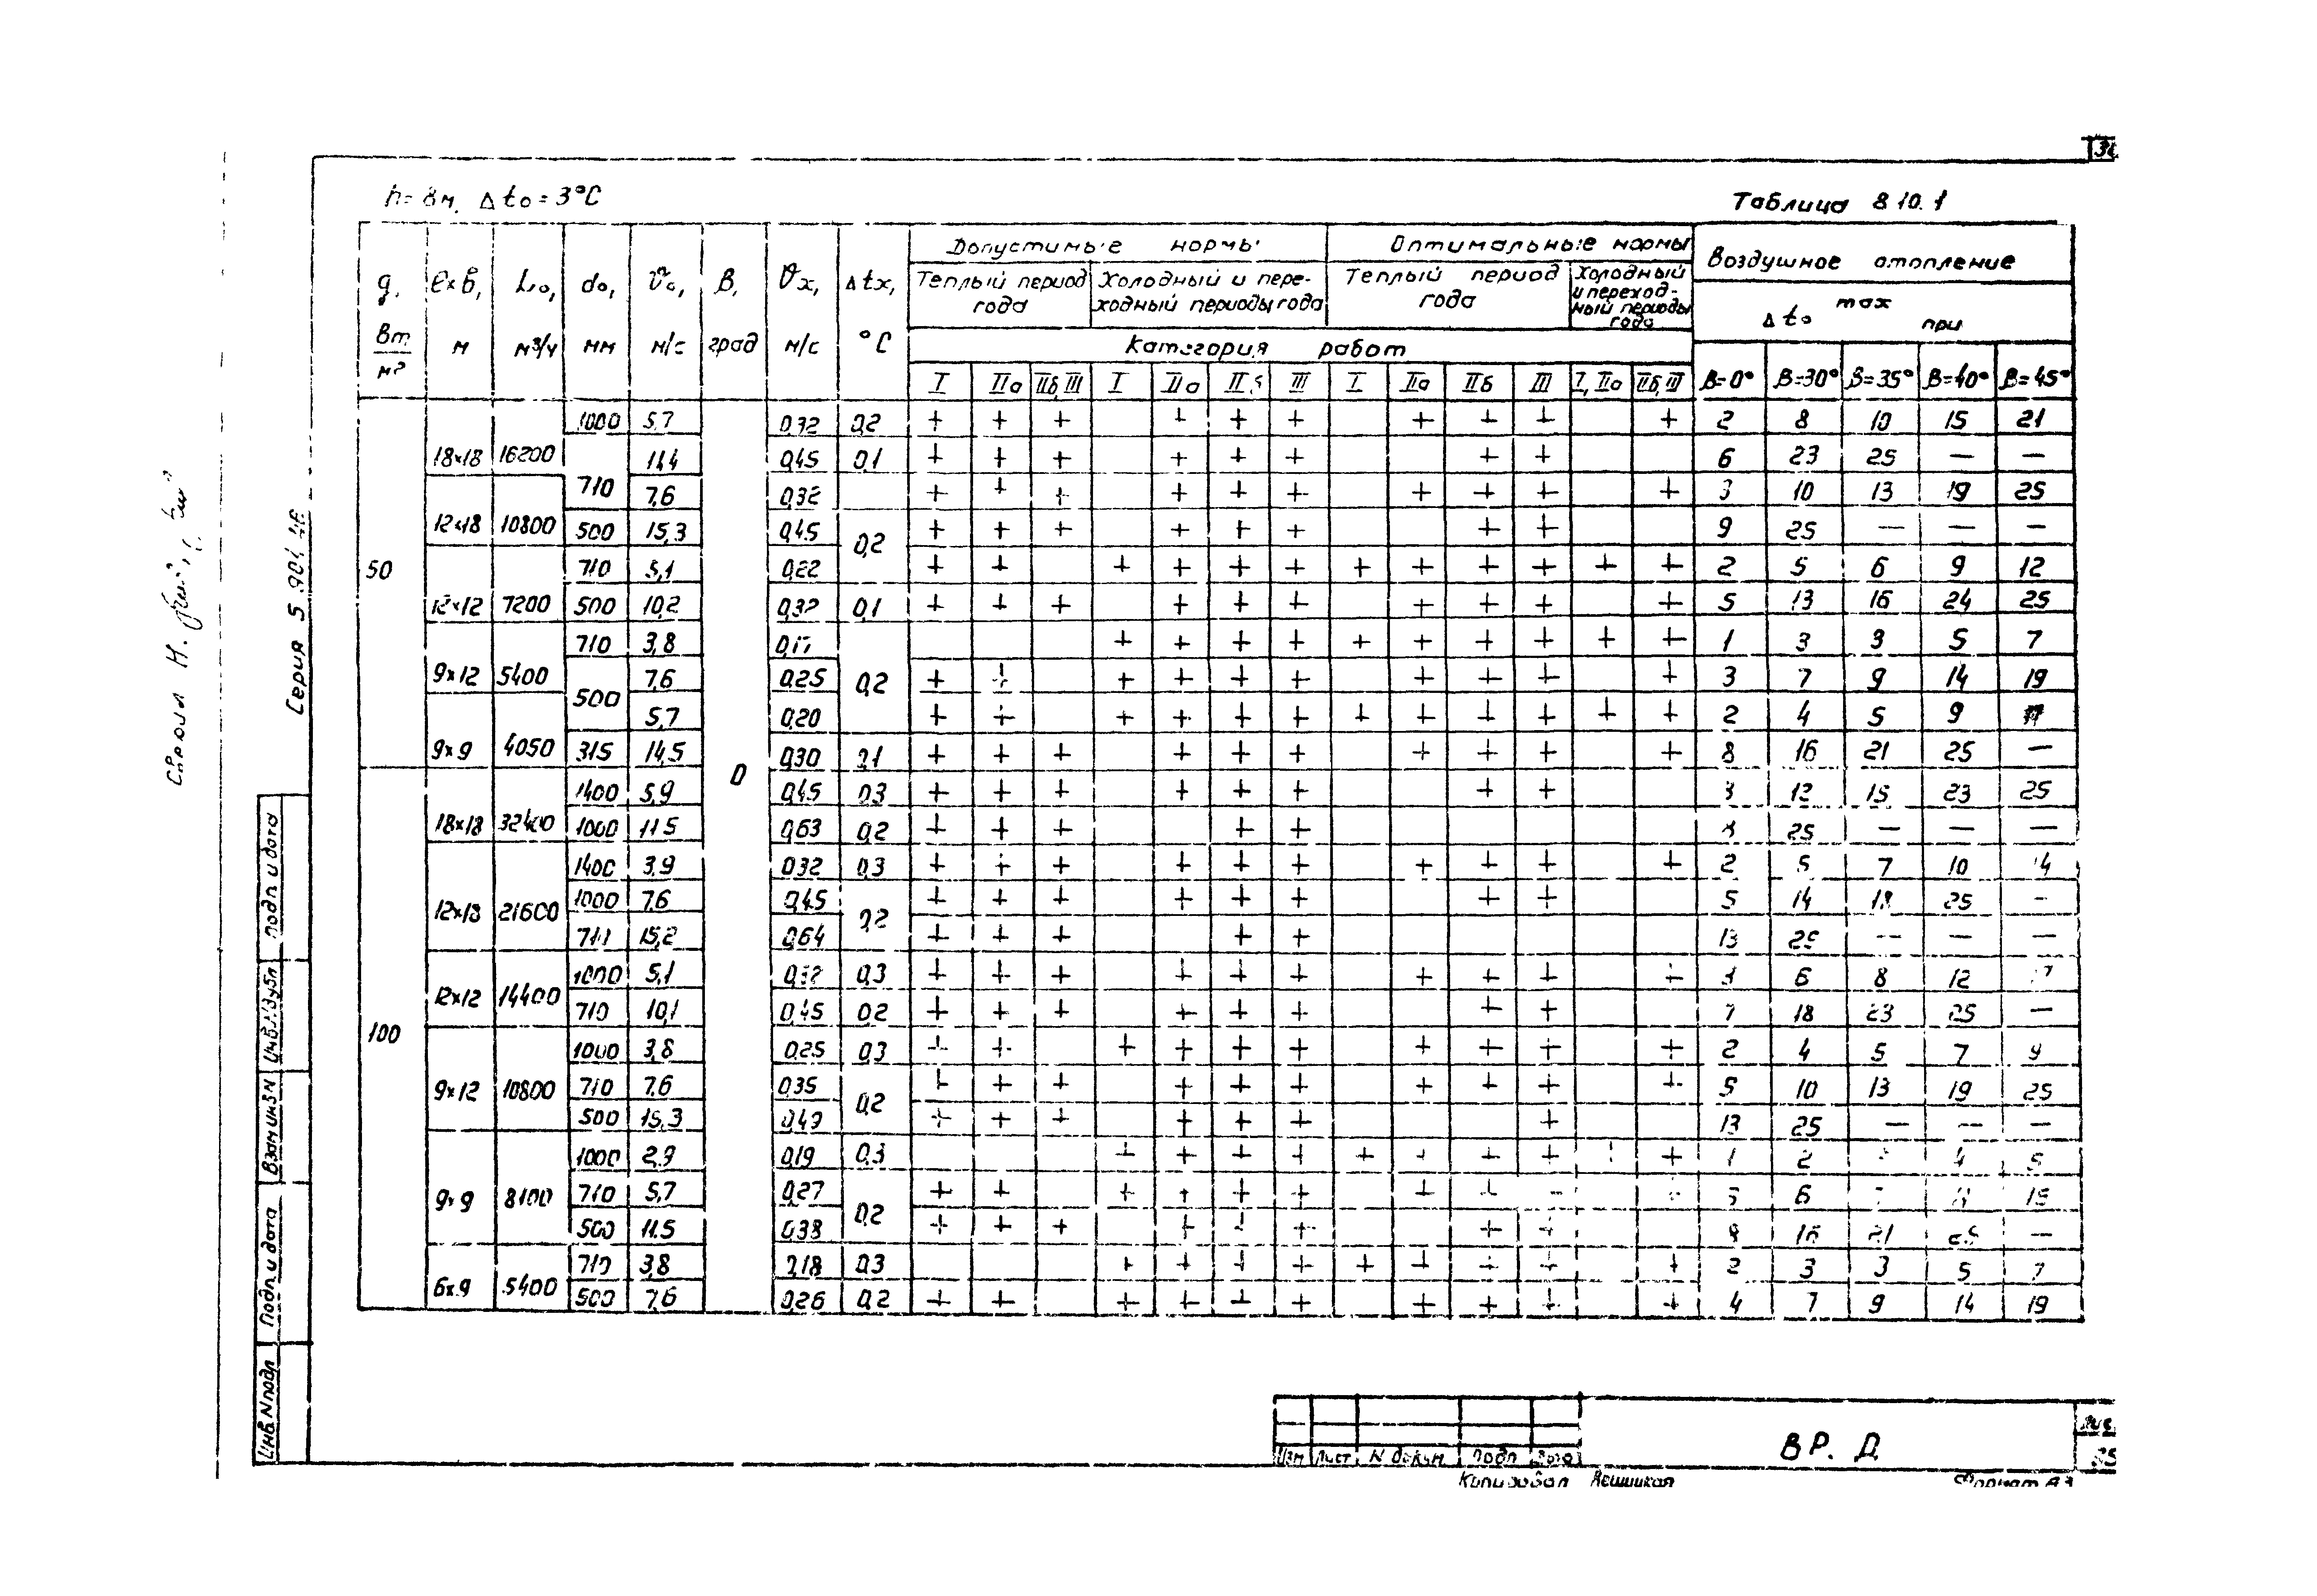 h=8м, Δto=3°С
Таблица 8.10.1
q, Вт/м² | ℓ×в, м | Lо, м³/ч | dо, мм | υо, м/с | β, град | υх, м/с | Δtх, °С | Допустимые нормы | Оптимальные нормы | Воздушное отопление
Теплый период года | Холодный и переходный периоды года | Теплый период года | Холодный и переходный периоды года | Δto max при
Категория работ
I | IIа | IIб, III | I | IIа | IIб | III | I | IIа | IIб | III | I, IIа | IIб, III | β=0° | β=30° | β=35° | β=40° | β=45°
50 | 18×18 | 16200 | 1000 | 5,7 | 0 | 0,32 | 0,2 | + | + | + | | + | + | + | | + | + | + | | + | 2 | 8 | 10 | 15 | 21
710 | 11,4 | 0,45 | 0,1 | + | + | + | | + | + | + | | | + | + | | | 6 | 23 | 25 | — | —
12×18 | 10800 | 7,6 | 0,32 | 0,2 | + | + | + | | + | + | + | | + | + | + | | + | 3 | 10 | 13 | 19 | 25
500 | 15,3 | 0,45 | + | + | + | | + | + | + | | | + | + | | | 9 | 25 | — | — | —
12×12 | 7200 | 710 | 5,1 | 0,22 | + | + | | + | + | + | + | + | + | + | + | + | + | 2 | 5 | 6 | 9 | 12
500 | 10,2 | 0,32 | 0,1 | + | + | + | | + | + | + | | + | + | + | | + | 5 | 13 | 16 | 24 | 25
9×12 | 5400 | 710 | 3,8 | 0,2 | | | | + | + | + | + | + | + | + | + | + | + | 1 | 3 | 3 | 5 | 7
500 | 7,6 | 0,25 | + | + | | + | + | + | + | | + | + | + | | + | 3 | 7 | 9 | 14 | 19
9×9 | 4050 | 5,7 | 0,20 | + | + | | + | + | + | + | + | + | + | + | + | + | 2 | 4 | 5 | 9
315 | 14,5 | 0,30 | 0,1 | + | + | + | | + | + | + | | + | + | + | | + | 8 | 16 | 21 | 25 | —
100 | 18×18 | 32400 | 1400 | 5,9 | 0,45 | 0,3 | + | + | + | | + | + | + | | | + | + | | | 3 | 12 | 15 | 23 | 25
1000 | 11,5 | 0,63 | 0,2 | + | + | + | | | + | + | | | | | | | 25 | — | — | —
12×18 | 21600 | 1400 | 3,9 | 0,32 | 0,3 | + | + | + | | + | + | + | | + | + | + | | + | 2 | 5 | 7 | 10 | 14
1000 | 7,6 | 0,45 | 0,2 | + | + | + | | + | + | + | | | + | + | | | 5 | 14 | 18 | 25 | —
710 | 15,2 | 0,64 | + | + | + | | | + | + | | | | | | | 13 | 25 | — | — | —
12×12 | 14400 | 1000 | 5,1 | 0,32 | 0,3 | + | + | + | | + | + | + | | + | + | + | | + | 3 | 6 | 8 | 12
710 | 10,1 | 0,45 | 0,2 | + | + | + | | + | + | + | | | + | + | | | 7 | 18 | 23 | 25 | —
9×12 | 10800 | 1000 | 3,8 | 0,25 | 0,3 | + | + | | + | + | + | + | | + | + | + | | + | 2 | 4 | 5 | 7 | 9
710 | 7,6 | 0,35 | 0,2 | + | + | + | | + | + | + | | + | + | + | | + | 5 | 10 | 13 | 19 | 25
500 | 15,3 | 0,49 | + | + | + | | + | + | + | | | | + | | | 13 | 25 | — | — | —
9×9 | 8100 | 1000 | 2,9 | 0,19 | 0,3 | | | | + | + | + | + | + | + | + | + | + | + | 1 | 2 | 4 | 5
710 | 5,7 | 0,27 | 0,2 | + | + | | + | + | + | + | | + | + | + | | + | 6 | 15
500 | 11,5 | 0,38 | + | + | + | | + | + | + | | | + | + | | | 16 | 21 | 25 | —
6×9 | 5400 | 710 | 3,8 | 0,18 | 0,3 | | | | + | + | + | + | + | + | + | + | | + | 2 | 3 | 3 | 5 | 7
500 | 7,6 | 0,26 | 0,2 | + | + | | + | + | + | + | | + | + | + | | + | 4 | 7 | 9 | 14 | 19
Серия 5.904
Подп. и дата
Инв.№дубл
Взам инв N
Подп. и дата
Инв.N подл
Изм Лист N докум. Подп Дата
ВР. Д
Копировал
Формат А3